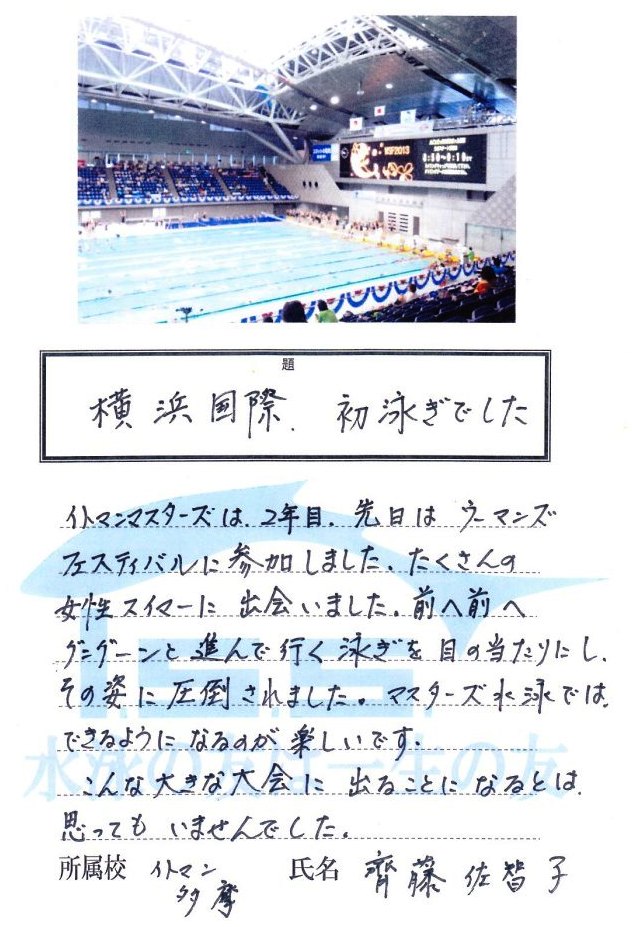 WSF2013
8:50〜9:10
題
横浜国際、初泳ぎでした
イトマンマスターズは、2年目、先日はウーマンズ
フェスティバルに参加しました。たくさんの
女性スイマーに出会いました。前へ前へ
グングーンと進んで行く泳ぎを目の当たりにし、
その姿に圧倒されました。マスターズ水泳では、
できるようになるのが楽しいです。
こんな大きな大会に出ることになるとは、
思ってもいませんでした。
水泳の友は一生の友
所属校 イトマン 氏名 齊藤佐智子
多摩